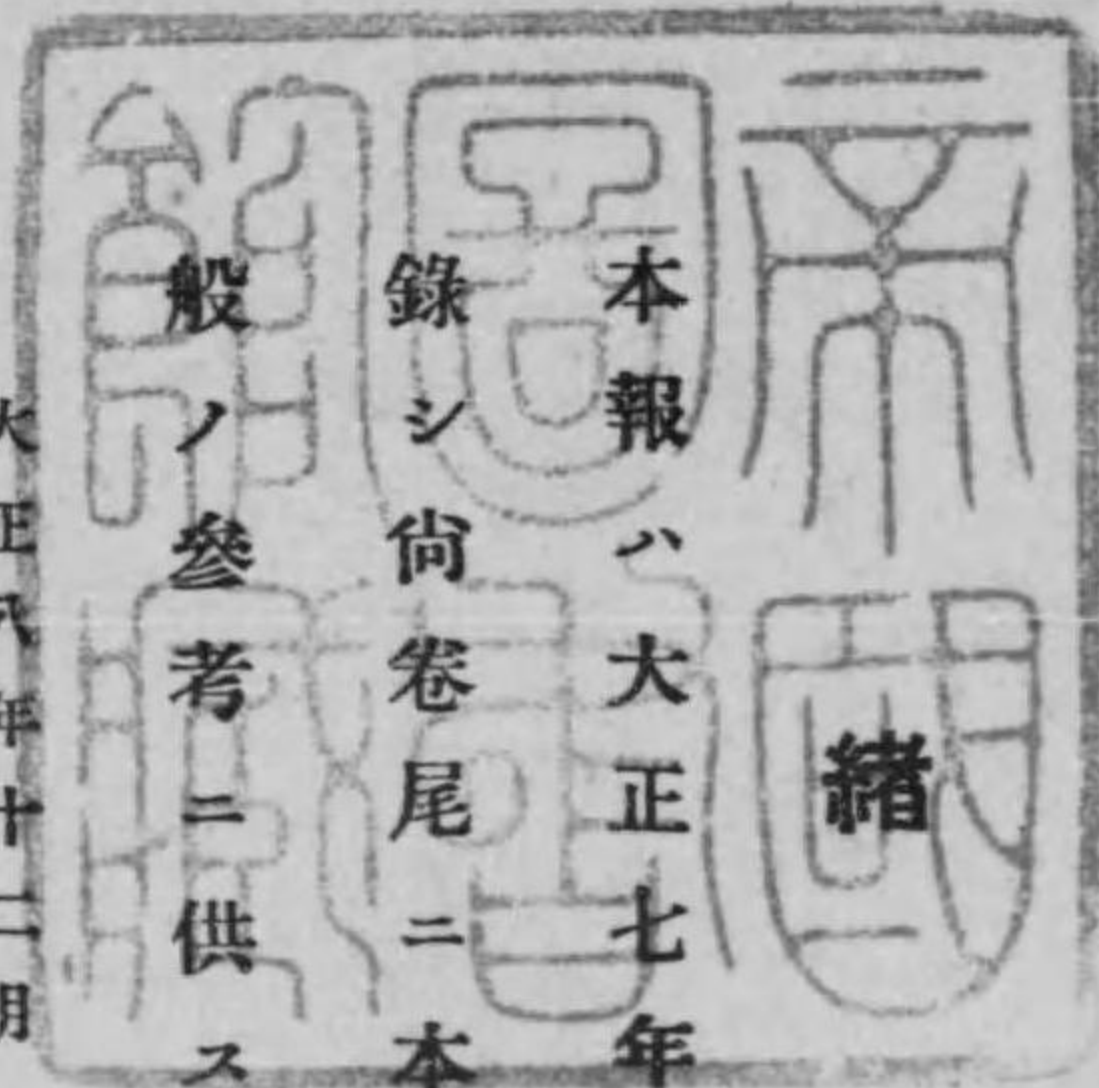 緒
本報ハ大正七年
錄シ尙卷尾ニ本
般ノ參考ニ供ス
大正八年十二月
帝國圖書館藏